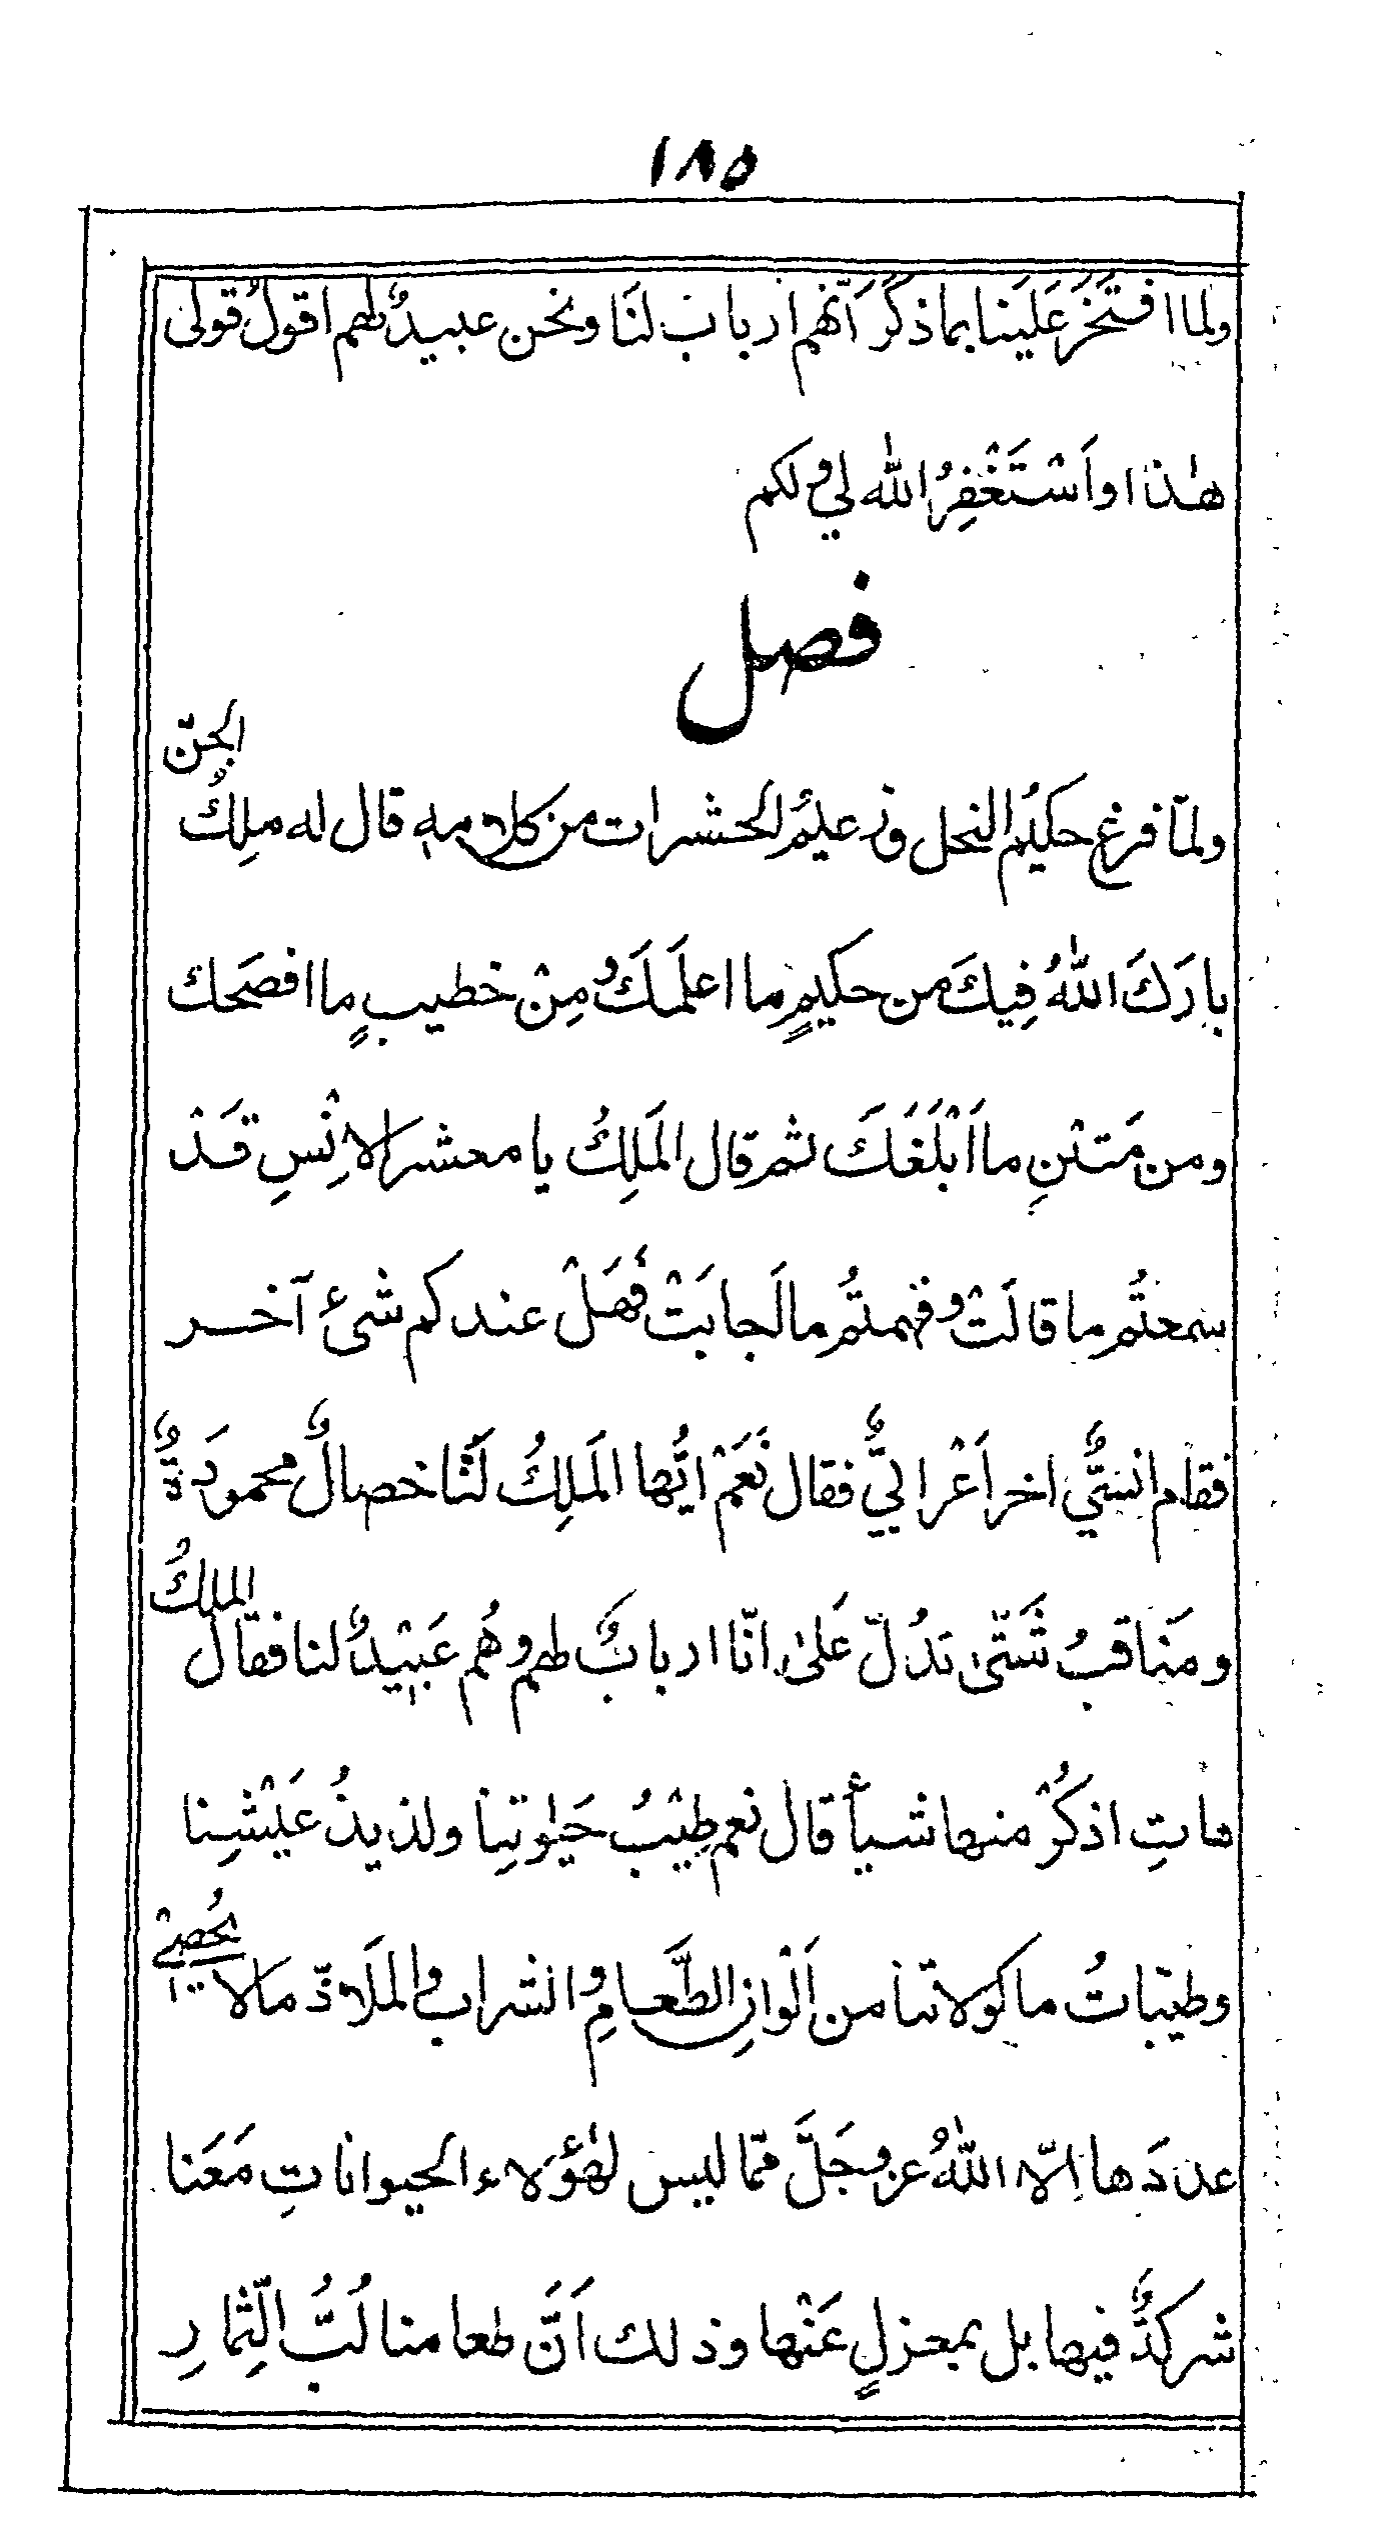 ١٨٥
ولما افتَخَرَ عَلَينا بما ذكَرَ اَنّهم ارباب لنَا ونحن عبيدٌ لهم اقولُ قولى
هٰذا واَسْتَغْفِرُ الله لي ولكم
فصل
ولمّا فرغ حكيمُ النحل وزعيمُ الحشرات من كلامه قال له ملِكُ الجنّ
بارَكَ اللهُ فِيكَ من حكيمٍ ما اعلَمَكَ ومِنْ خطيبٍ ما افصَحك
ومن مَتنٍ ما اَبْلَغَكَ ثم قال المَلِكُ يا معشر الانِْسِ قَد
سمعتُم ما قالَتْ وفهمتُم ما اَجابَتْ فَهَلْ عندكم شئ آخر
فقام انسيٌّ اخر اَعْرابيٌّ فقال نَعَمْ ايُّها المَلِكُ لَنَا خصالٌ محمودَةٌ
ومَناقبُ شَتّىٰ تدُلّ عَلىٰ انّا اربابٌ لهم وهُم عَبِيْدٌ لنا فقال الملكُ
هاتِ اذكُرْ منها شيأً قال نعم طِيْبُ حَيٰوتِنا ولذيذُ عَيْشِنا
وطيّباتُ ماكولاتنا من اَلْوانِ الطَّعامِ والشراب والمَلاذّ ما لا يُحصىٰ
عددَها اِلّا اللهُ عز وجَلَّ ممّا ليس لهٰؤلاء الحيواناتِ مَعَنا
شركةٌ فيها بل بمعزلٍ عَنْها وذلك اَنَّ طعامنا لُبُّ الثِّمارِ